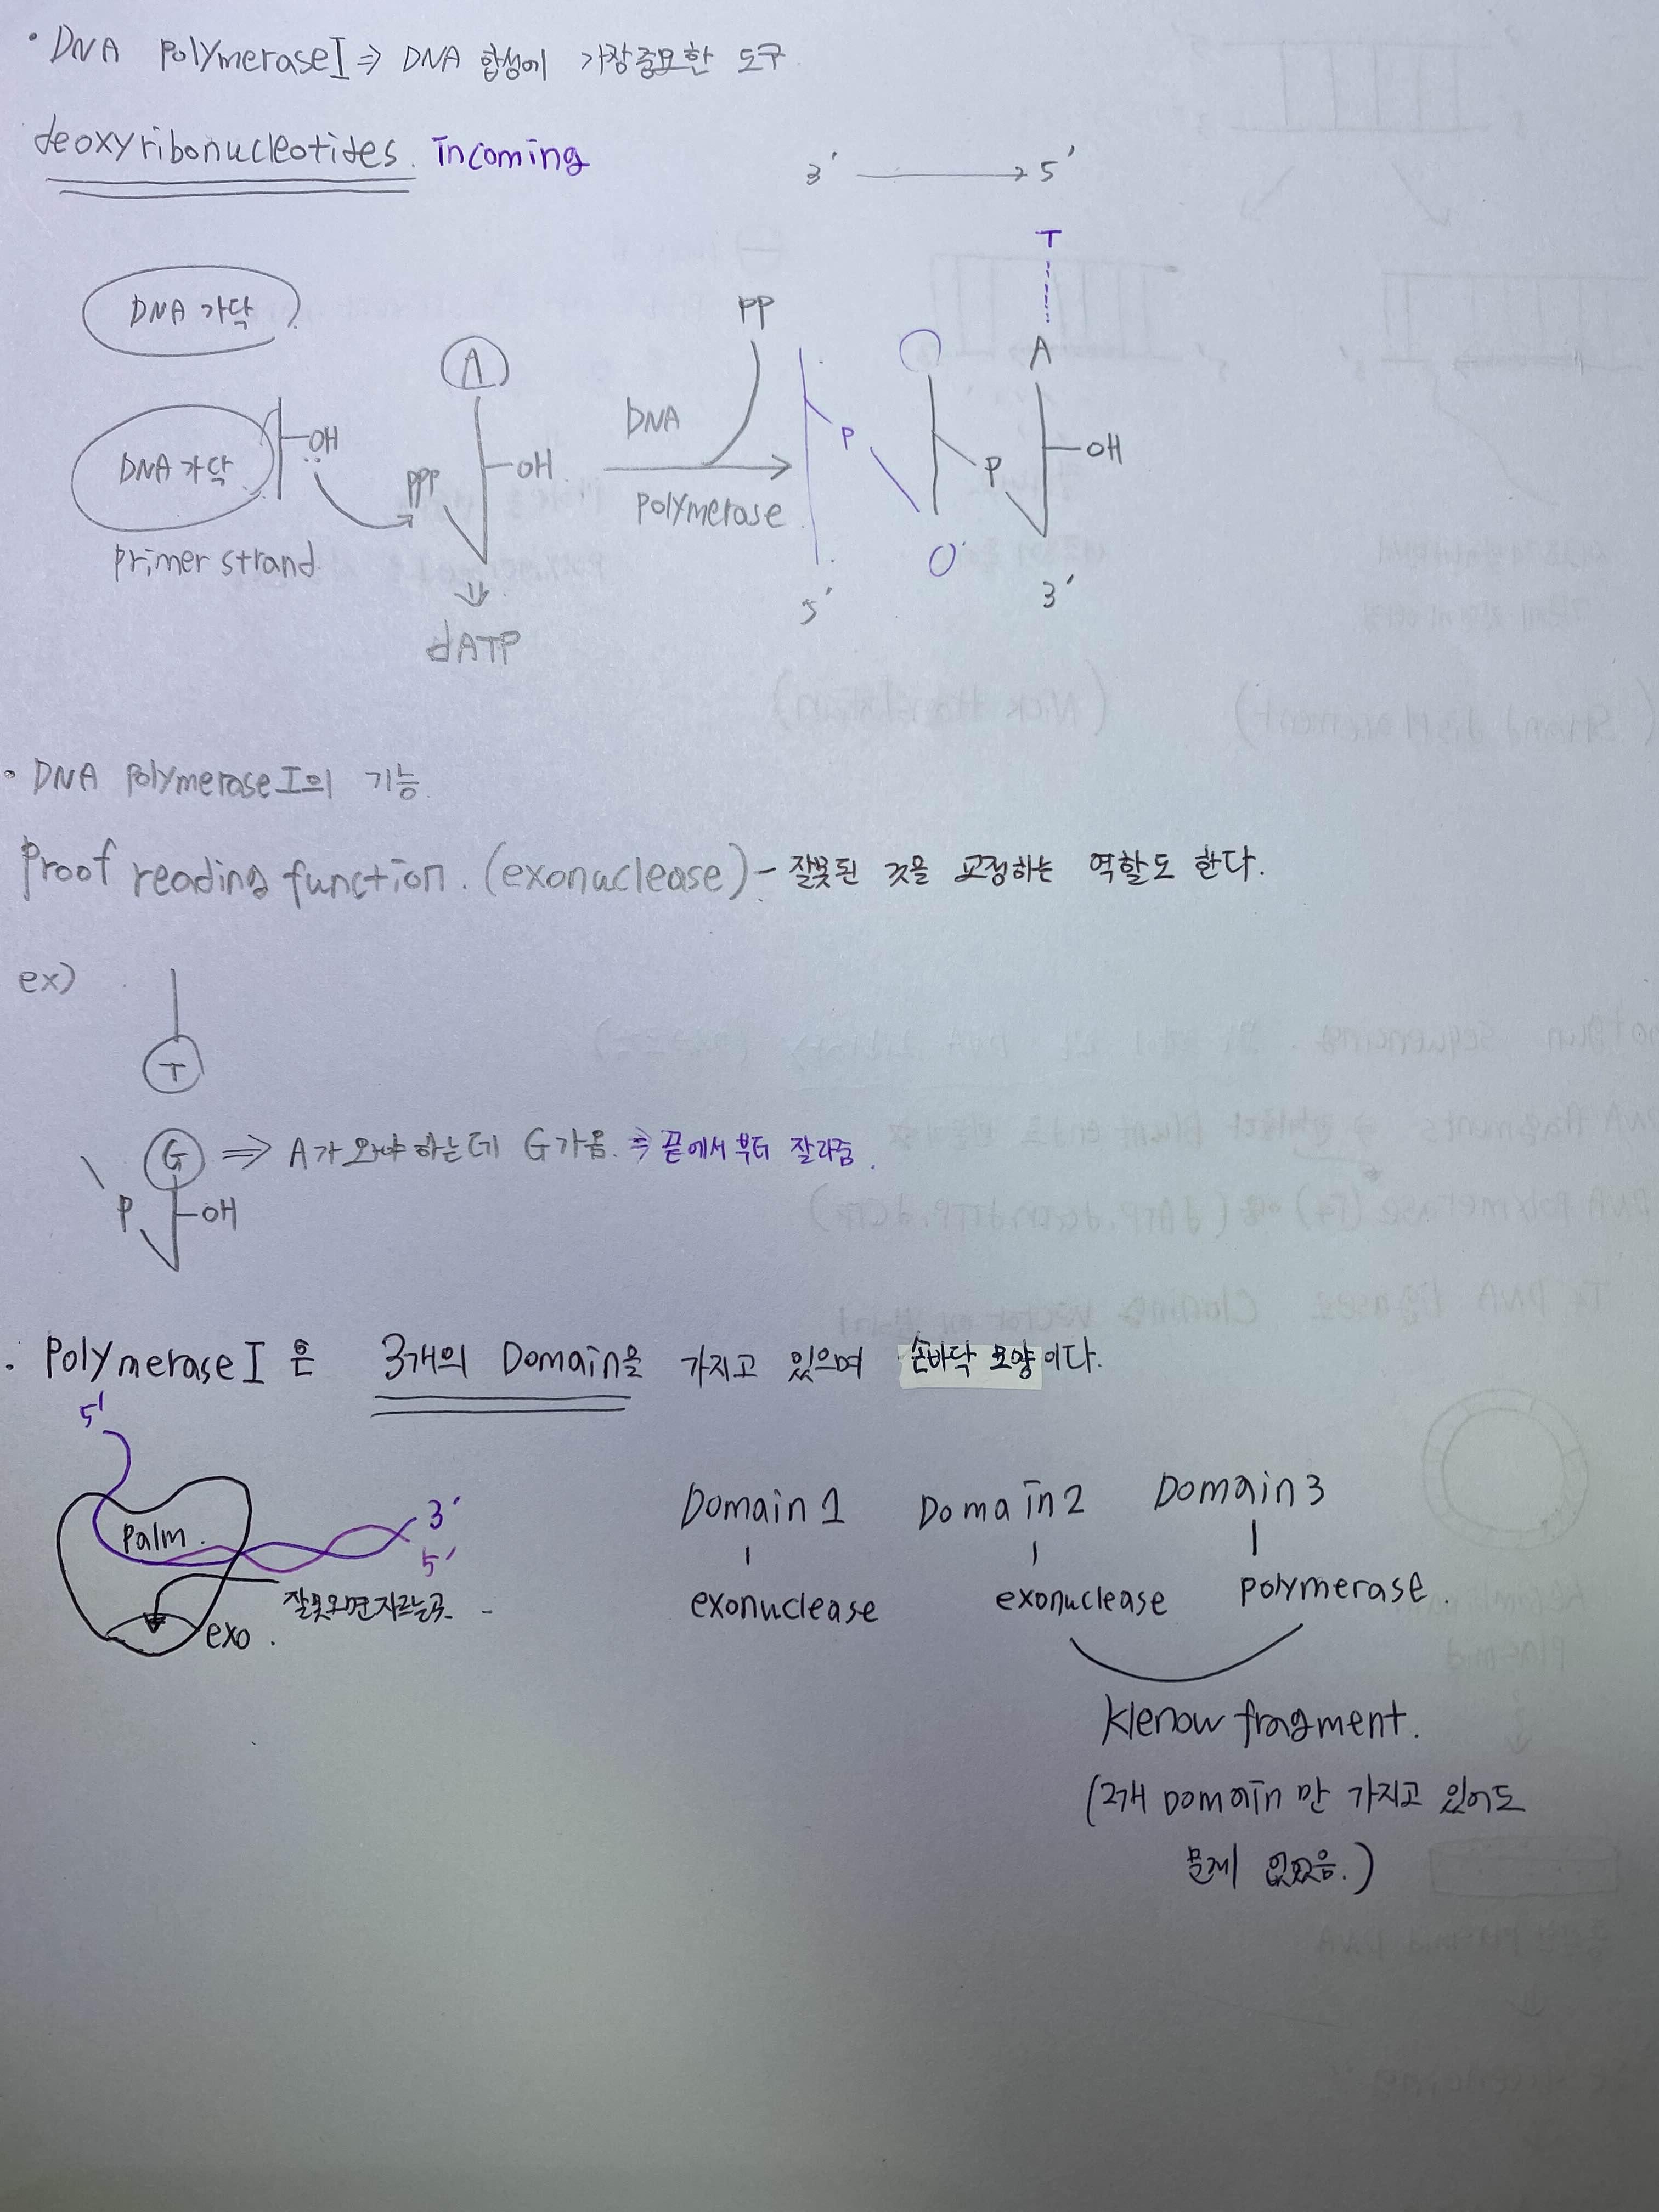 · DNA PolymeraseI ⇒ DNA 합성에 가장중요한 도구
deoxyribonucleotides. incoming
3' → 5'
T
DNA 가닥
PP
A
A
DNA 가닥
OH
PPP
OH
DNA
Polymerase
P
P
OH
Primer strand
5'
3'
dATP
· DNA PolymeraseI의 기능
Proof reading function. (exonuclease) - 잘못된 것을 교정하는 역할도 한다.
ex)
T
G ⇒ A가 와야 하는데 G가옴. ⇒ 끝에서 부터 잘라줌.
P
OH
· PolymeraseI 은 3개의 Domain을 가지고 있으며 손바닥 모양이다.
5'
Palm.
3'
5'
잘못오면자르는곳.
exo.
Domain 1 Domain 2 Domain 3
exonuclease exonuclease polymerase.
Klenow fragment.
(2개 Domain 만 가지고 있어도
문제 없었음.)